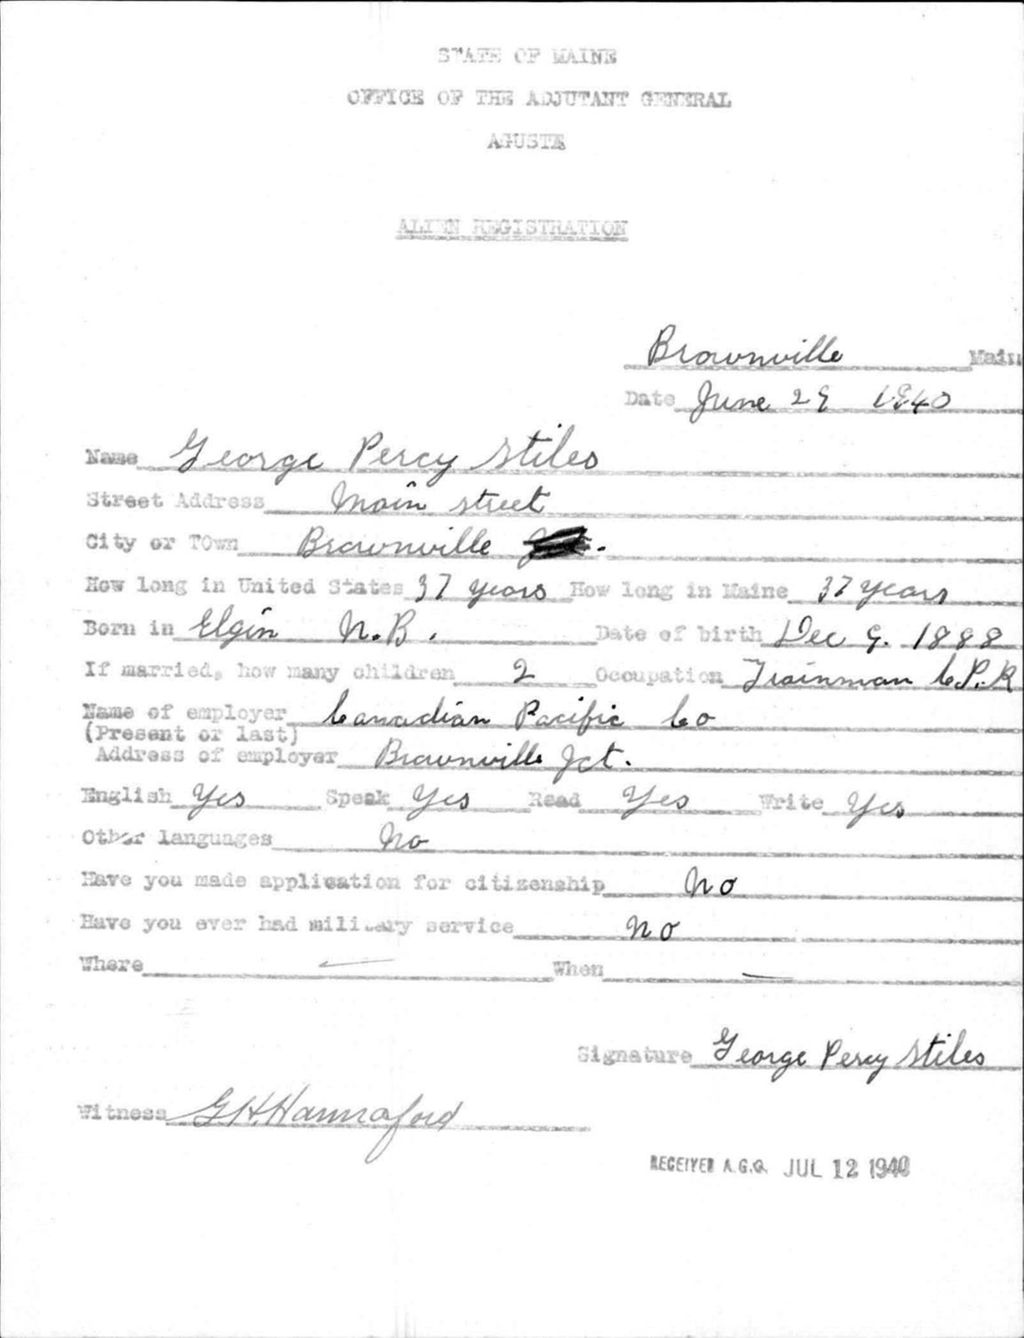 STATE OF MAINE
OFFICE OF THE ADJUTANT GENERAL
AGUSTA
ALIEN REGISTRATION
Brownville Main
Date June 29 1940
Name George Percy Stiles
Street Address Main street
City or TOwn Brownville .
How long in United States 37 years How long in Maine 37 years
Born in Elgin N.B. Date of birth Dec 9. 1888
If married, how many children 2 Occupation Trainman C.P.R
Name of employer Canadian Pacific Co
(Present or last)
Address of employer Brownville Jct.
English Yes Speak Yes Read Yes Write Yes
Other languages No
Have you made application for citizenship No
Have you ever had military service No
Where — When —
Signature George Percy Stiles
Witness G.H. Hannaford
RECEIVED A.G.O. JUL 12 1940